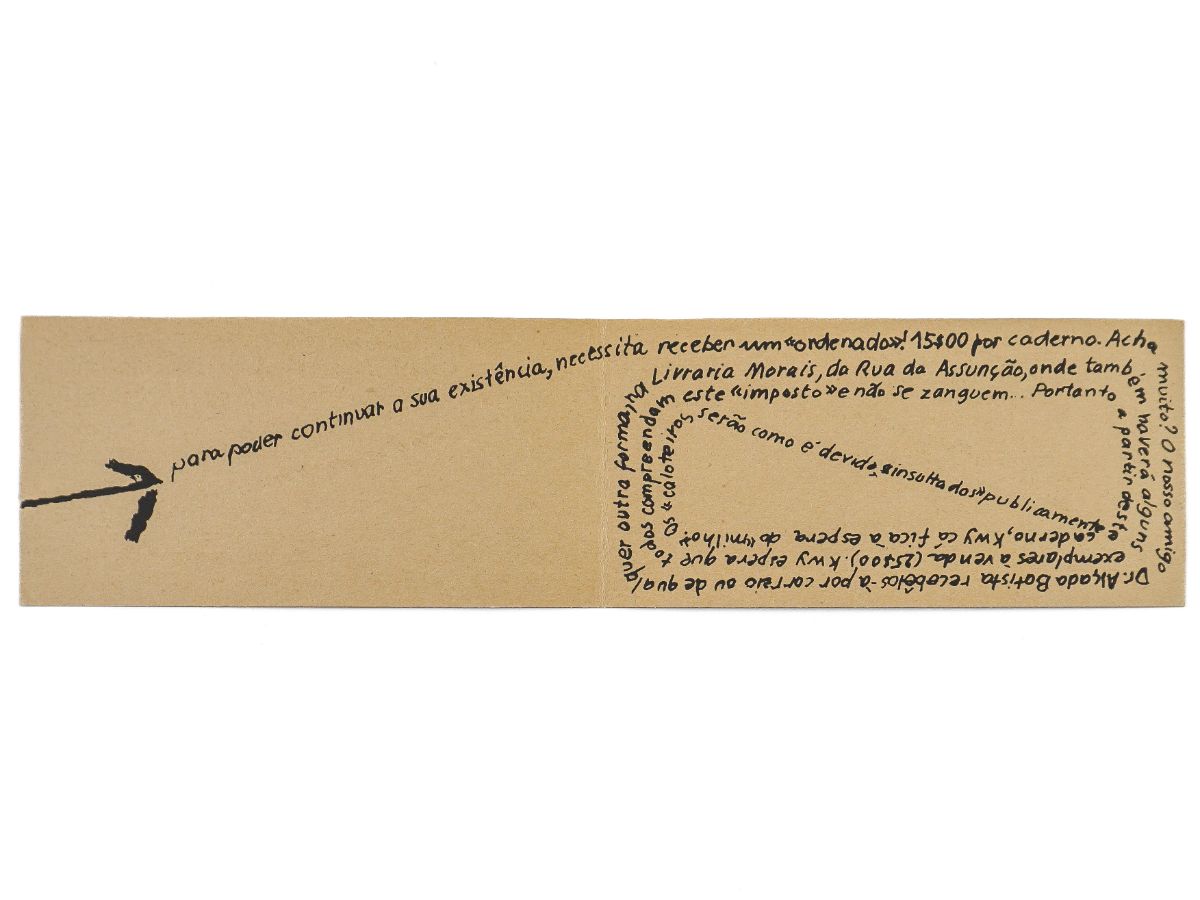 para poder continuar a sua existência, necessita receber um «ordenado»! 15$00 por caderno. Acha
muito? O nosso amigo
Dr. Alçada Batista recebêlos-à por correio ou de qual
quer outra forma, na
Livraria Morais, da Rua da Assunção, onde tamb
ém haverá alguns
exemplares à venda (25$00). Kwy espera que to
dos compreendam
este «imposto» e não se zanguem... Portanto
a partir deste
caderno, Kwy cá fica à espera do "milho".
Os «caloteiros»,
serão como é devido, «insultados» publicamente